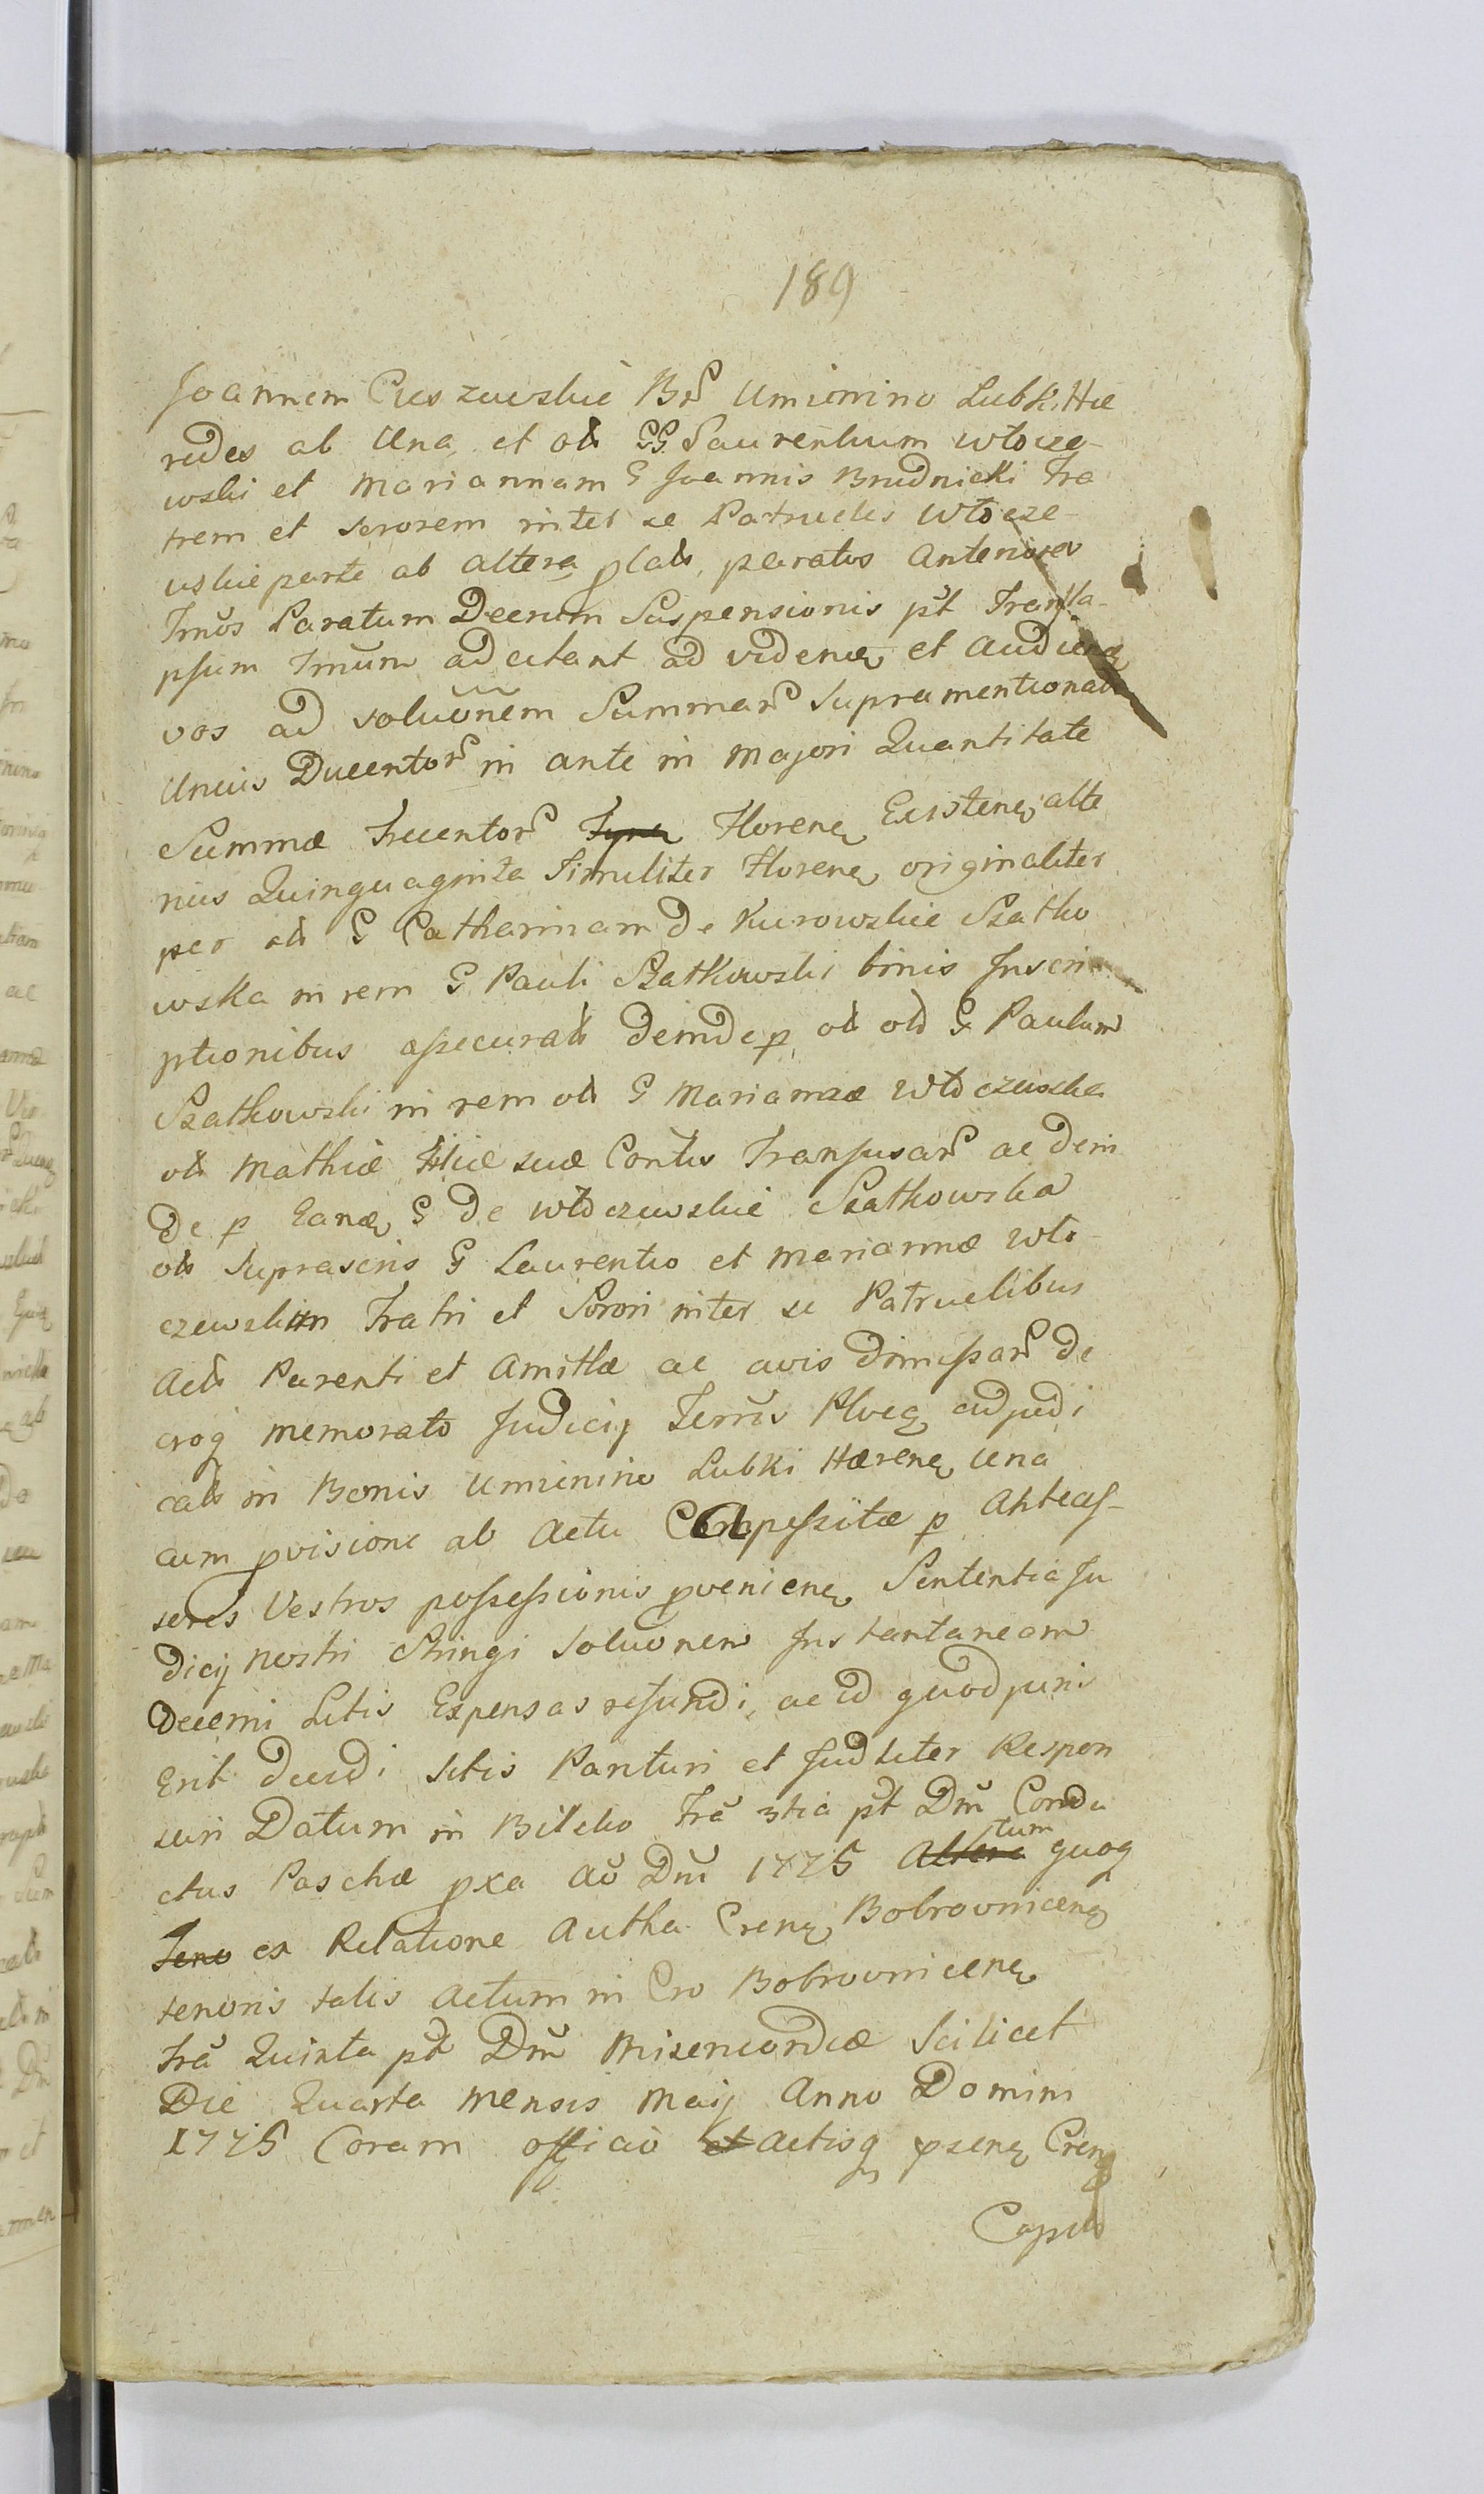 189
Joannem Cieszewskie Br Umienino Lubki Hæ
redes ab Una et olt GG Laurentium Włocze-
wski et Mariannam G Joannis Brudnicki Fra
trem et sororem inter se Patrueles Włocze-
wskie parte ab altera plats, paratos Anteriores
Tmos Paratum Decrum Suspensionis pt Transla-
psum Tmum adcitant ad videnq et Audienq
vos ad soluonem Summar supramentionats
Uncis Ducentor in ante in Majori Quantitate
Summæ Trecentor Floreneq Existeneq alte
rius Quinquaginta Similiter Floreneq originaliter
per olt G Catharinam De Kurowskie Szatko
wska in rem G Pauli Szatkowski binis Inscri
ptionibus assecurats Deinde p olt olt G Paulum
Szatkowski in rem olt G Mariannæ Włoczewska
olt Mathiæ Filiæ suæ Contis Transfusar ac Dein
De p Eandq G De Włoczewskie Szatkowska
olt suprascris G Laurentio et Mariannæ Wło
czewskim Fratri et Sorori inter se Patruelibus
Acts Parenti et Amittæ ac avis Dimissar De
croq memorato Judicij Terris Ploceq adjudi
cats in Bonis Umienino Lubki Hæreneq una
cum pvisione ab Actu Compessitæ p Anteces-
sores Vestros possessionis pvenieneq Sententia Ju
dicij nostri Stringi Soluonem Instantaneam
Decerni Litis Expensas refundi, ac id quod juris
Erit Decidi sitis Parituri et Judliter Respon
suri Datum in Bielsko Fra 3tia pt Dm Condu
ctus Paschæ pxa Ao Dni 1775 Altera tum quoq
Teno ex Relatione Autha Creneq Bobrovniceneq
tenoris talis Actum in Cro Bobrovniceneq
Fra Quinta pt Dm Misericordiæ Scilicet
Die Quarta Mensis Maij Anno Domini
1775 Coram officio et Actisq pseneq Creneq
Capits